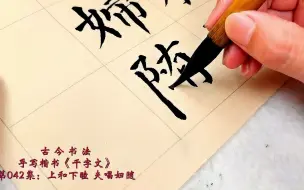 婦
古今书法
手写楷书《千字文》
第042集：上和下睦 夫唱妇随